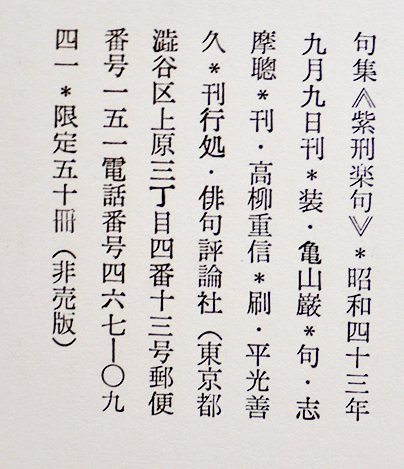 句集《紫刑楽句》＊昭和四十三年
九月九日刊＊装・亀山巌＊句・志
摩聰＊刊・高柳重信＊刷・平光善
久＊刊行処・俳句評論社（東京都
澁谷区上原三丁目四番十三号郵便
番号一五一電話番号四六七―〇九
四一＊限定五十冊（非売版）